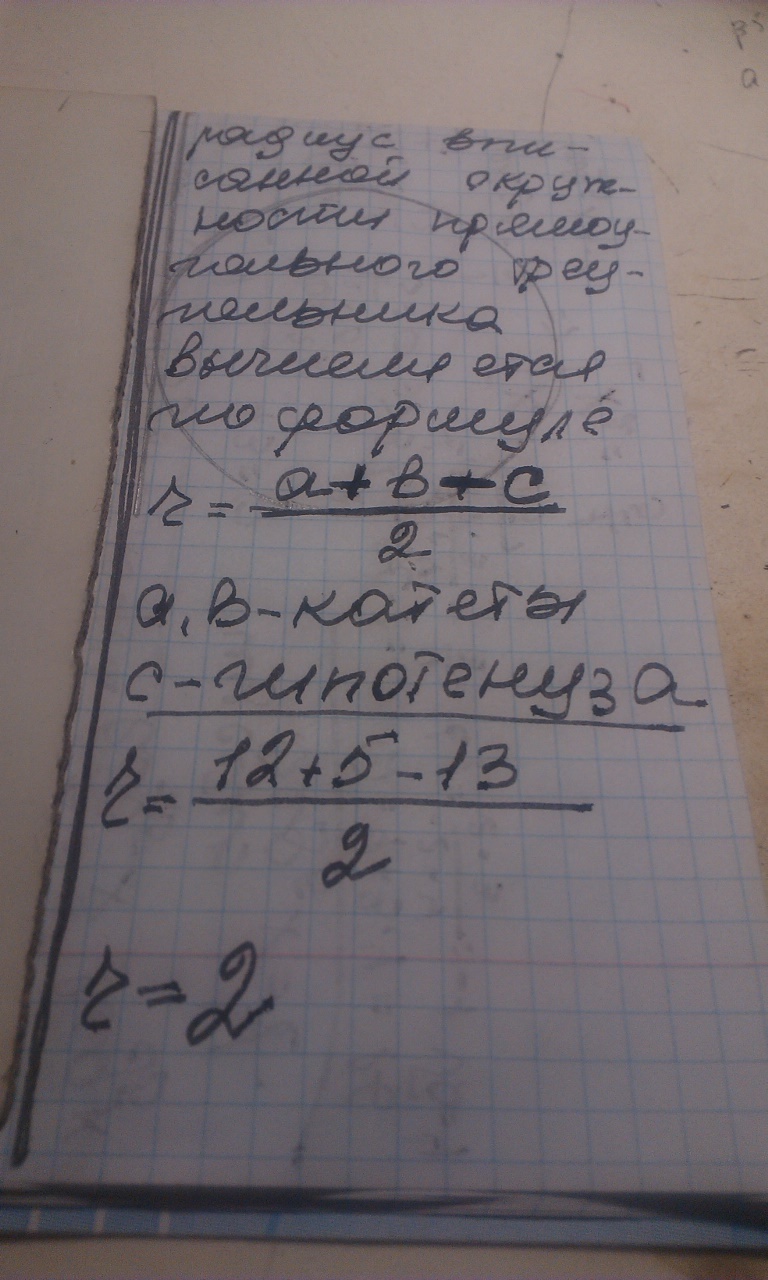 радиус впи-
санной окруж-
ности прямоу-
гольного треу-
гольника
вычисляется
по формуле
r = a + b - c
2
a, b - катеты
c - гипотенуза
r = 12 + 5 - 13
2
r = 2